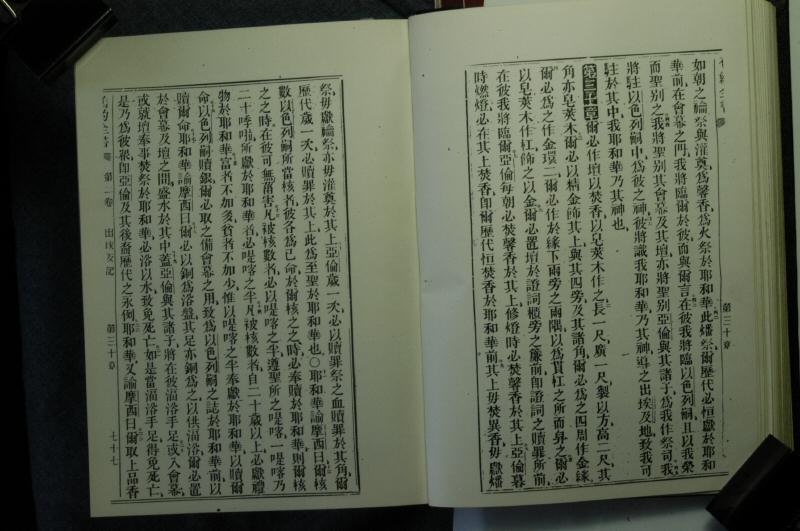 如朝之禴祭與灌奠爲馨香爲火祭於耶和華此燔祭爾歷代必恒獻於耶和
華前在會幕之門我將臨爾於彼而與爾言在彼我將臨以色列嗣且以我榮
而聖别之我將聖别其會幕及其壇亦將聖别亞倫與其諸子爲我作祭司我
將駐以色列嗣中爲彼之神彼將識我耶和華乃其神導之出埃及地致我可
駐於其中我耶和華乃其神也
第三十章爾必作壇以焚香以皂莢木作之長一尺廣一尺製以方高二尺其
角亦皂莢木爾必以精金飾其上與其四旁及其諸角爾必爲之四周作金緣
爾必爲之作金環二爾必作於緣下兩旁之兩隅以爲貫杠之所而舁之爾必
以皂莢木作杠飾之以金爾必置壇於證詞櫃旁之簾前卽證詞之贖罪所前
在彼我將臨爾亞倫每朝必焚馨香於其上修燈時必焚馨香於其上亞倫暮
時燃燈必在其上焚香卽爾歷代恒焚香於耶和華前其上毋焚異香毋獻燔
第三十章
祭毋獻禴祭亦毋灌奠於其上亞倫歲一次必以贖罪祭之血贖罪於其角爾
歷代歲一次必贖罪於其上此爲至聖於耶和華也○耶和華諭摩西曰爾核
數以色列嗣所當核者彼各爲己命於爾核之之時必奉贖於耶和華則爾核
之之時在彼可無菑害凡被核數者必以是喀之半遵聖所之是喀一是喀乃
二十季啦所獻於耶和華者必是喀之半凡被核數者自二十歲以上必獻禮
物於耶和華富者不加多貧者不加少惟以是喀之半奉獻於耶和華以贖爾
命以色列嗣贖銀爾必取之備會幕之用致爲以色列嗣之誌於耶和華前以
贖爾命耶和華諭摩西曰爾必以銅爲浴盤其足亦銅爲之以供洒浴爾必置
於會幕及壇之間盛水於其中蓋亞倫與其諸子將在彼洒浴手足或入會幕
或就壇奉事焚祭於耶和華必浴以水致免死亡如是當洒浴手足得免死亡
是乃爲彼歟卽亞倫及其後裔歷代之永例耶和華又諭摩西曰爾取上品香
第二卷
第三十章
七十七